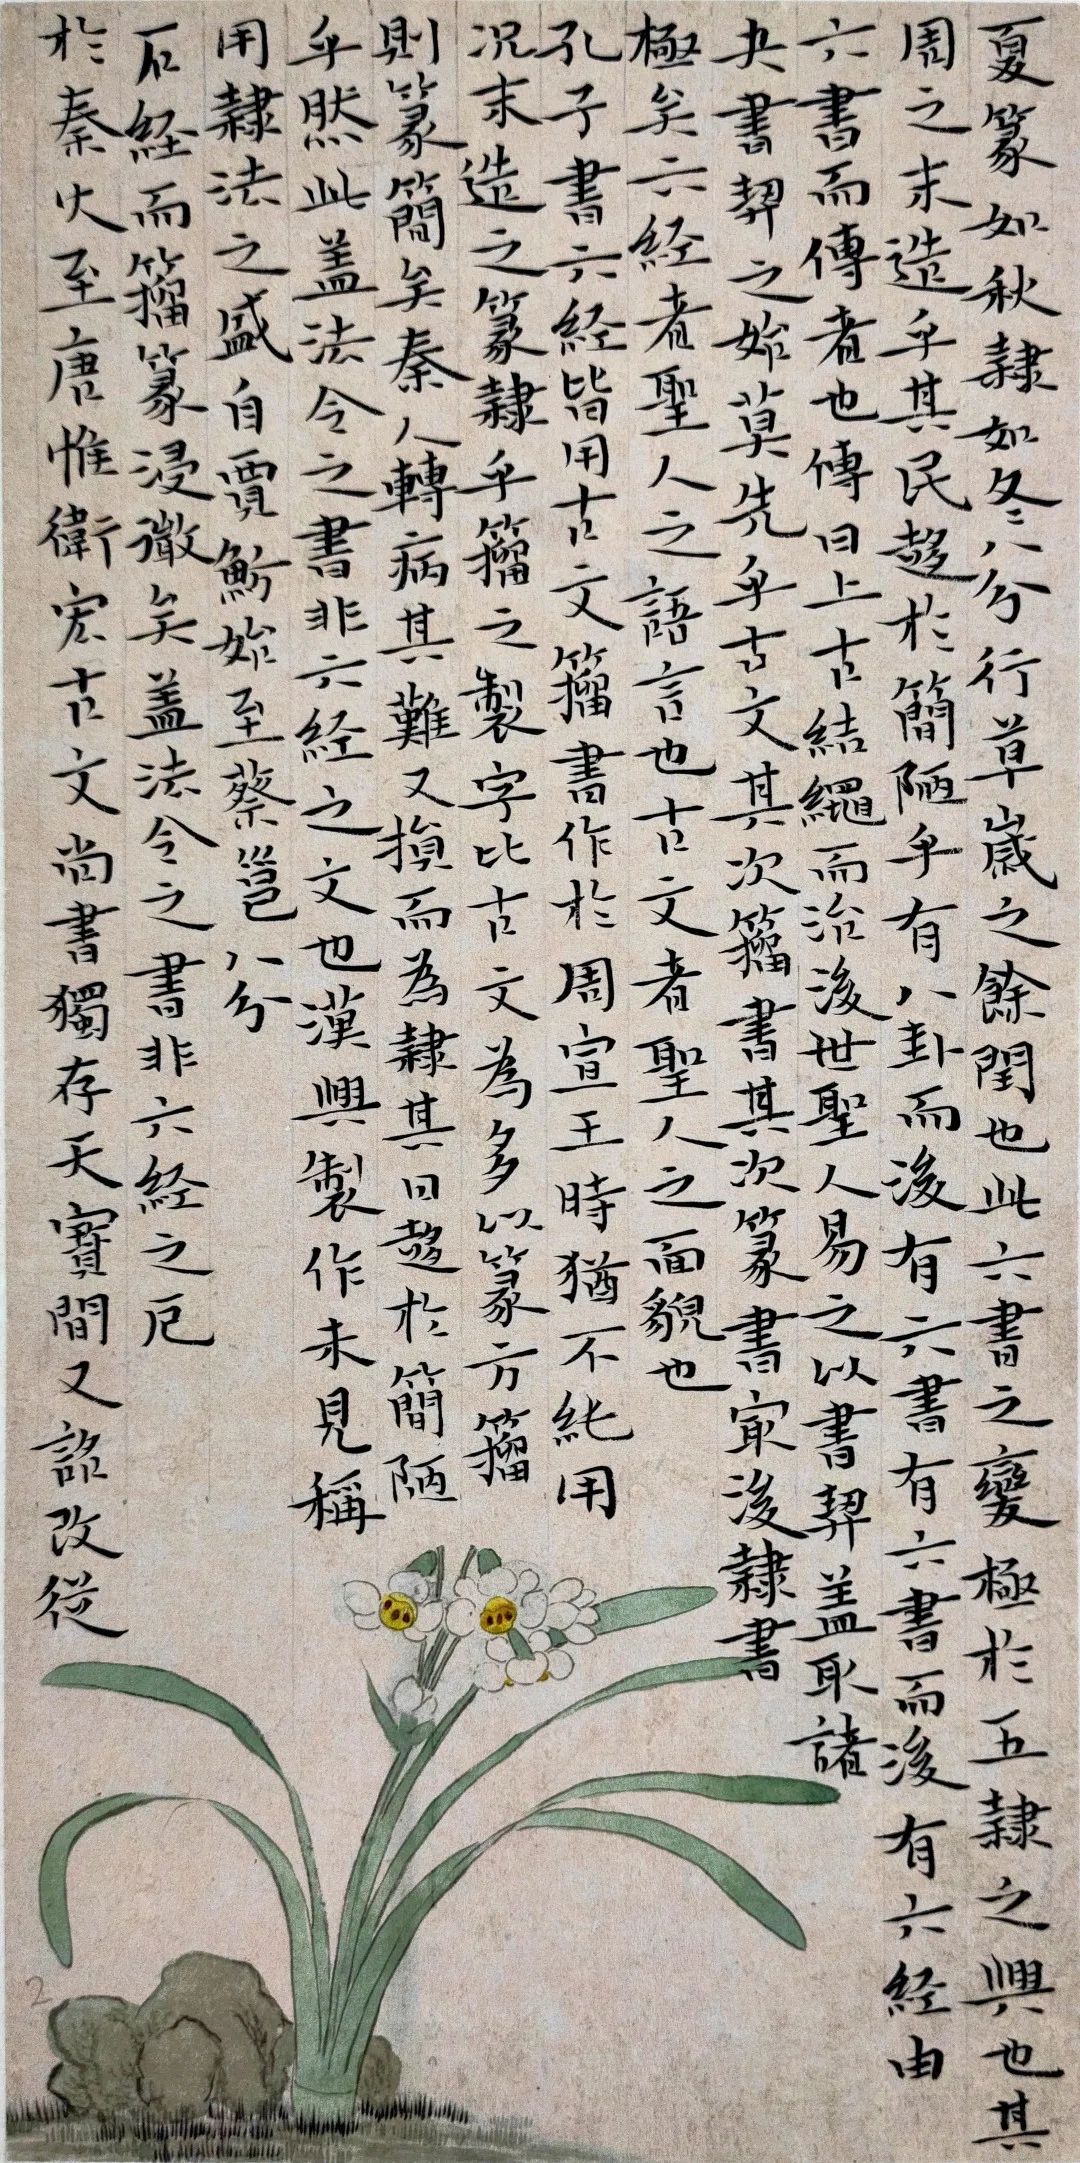 夏篆如秋隸如冬八分行草歲之餘閏也此六書之變極於五隸之興也其
周之末造乎其民趍於簡陋乎有八卦而後有六書有六書而後有六經由
六書而傳者也傳曰上古結繩而治後世聖人易之以書契蓋取諸
夬書契之始莫先乎古文其次籀書其次篆書冣後隸書
極矣六経者聖人之語言也古文者聖人之面貌也
孔子書六経皆用古文籀書作於周宣王時猶不純用
况末造之篆隸乎籀之製字比古文為多以篆方籀
則篆簡矣秦人轉病其難又損而為隸其日趍於簡陋
乎然此蓋法令之書非六經之文也漢興製作未見稱
用隸法之盛自賈魴始至蔡邕八分
石経而籀篆浸微矣蓋法令之書非六経之厄
於秦火至唐惟衛宏古文尚書獨存天寶間又詔改從
2